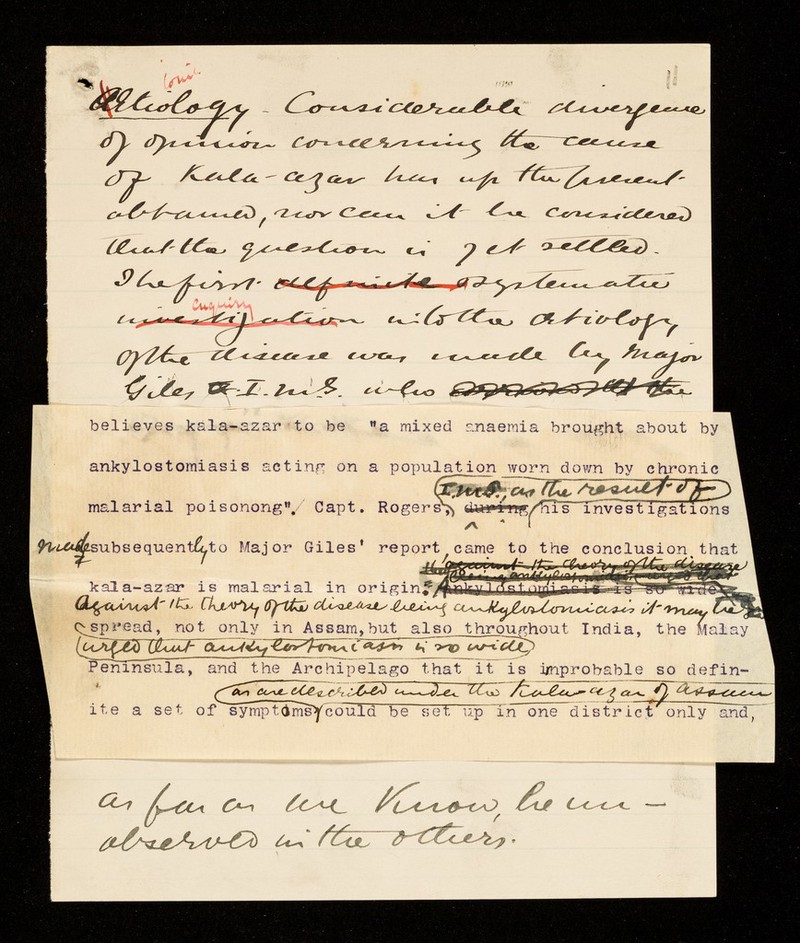 Ætiology - Considerable divergence
of opinion concerning the cause
of Kala-azar has up the present
obtained, nor can it be considered
that the question is yet settled.
The first definite systematic
enquiry
investigation into the Ætiology
of the disease was made by Major
Giles I.M.S. who
believes kala-azar to be "a mixed anaemia brought about by
ankylostomiasis acting on a population worn down by chronic
I.M.S., as the result of
malarial poisonong". Capt. Rogers, during his investigations
made subsequently to Major Giles' report, came to the conclusion that
against the theory of the disease
being ankylostomiasis urged that
kala-azar is malarial in origin: ankylostomiasis is so wide
Against the theory of the disease being ankylostomiasis it may be
spread, not only in Assam, but also throughout India, the Malay
urged that ankylostomiasis is so wide
Peninsula, and the Archipelago that it is improbable so defin-
as are described under the Kala-azar of Assam
ite a set of symptoms, could be set up in one district only and,
as far as we know, be un-
observed in the others.